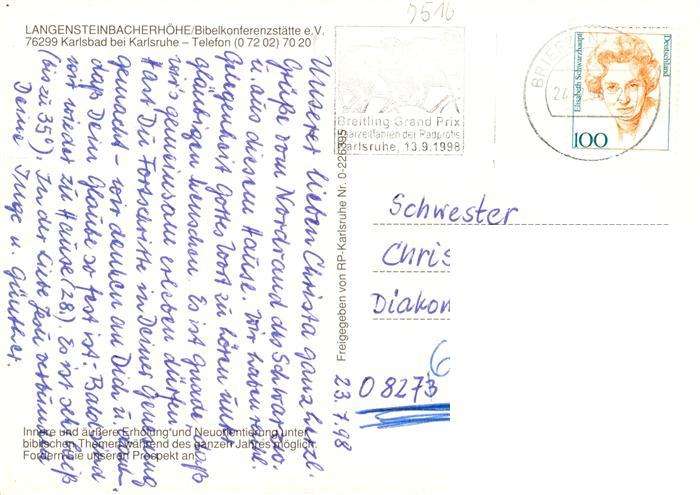 2516
LANGENSTEINBACHERHÖHE/Bibelkonferenzstätte e.V.
76299 Karlsbad bei Karlsruhe – Telefon (0 72 02) 70 20
Unserer lieben Christa ganz herzl.
Grüße vom Nordrand des Schwarzw.
u. aus diesem Hause. Wir haben
Gelegenheit Gottes Wort zu hören und
gläubigen Menschen. Es ist gut, daß
wir's gemeinsam erleben dürfen.
Hast Du Fortschritte in Deiner Genesung
gemacht - wir denken an Dich u.
daß Dein Glaube so fest ist. Bald sind
wir wieder zu Hause (28.). Es ist sehr heiß
(bis zu 35°). In der Liebe Jesu verbunden
Deine Inge u. Günther.
23.7.98
Innere und äußere Erholung und Neuorientierung unter
biblischen Themen während des ganzen Jahres möglich.
Fordern Sie unseren Prospekt an.
Freigegeben von RP-Karlsruhe Nr. 0-226395
Breitling Grand Prix
Paarzeitfahren der Radprofis
Karlsruhe, 13.9.1998
BRIEF
24
Elisabeth Schwarzhaupt
Deutschland
100
Schwester
Chris
Diakon
6
08273